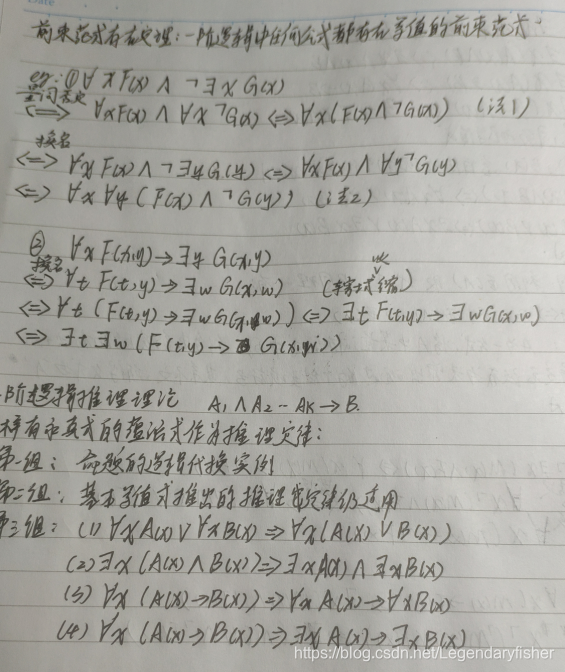 Date
前束范式存在定理:一阶逻辑中任何公式都存在等值的前束范式.
eg:① ∀xF(x) ∧ ¬∃xG(x)
量词否定
<=> ∀xF(x) ∧ ∀x¬G(x) <=> ∀x(F(x)∧¬G(x)) (法1)
换名
<=> ∀xF(x) ∧ ¬∃yG(y) <=> ∀xF(x) ∧ ∀y¬G(y)
<=> ∀x∀y(F(x) ∧ ¬G(y)) (法2)
② ∀xF(x,y)→∃yG(x,y)
换名
<=> ∀t F(t,y)→∃wG(x,w) (辖域缩)
<=> ∀t (F(t,y)→∃wG(x,w)) <=> ∃t F(t,y)→∃wG(x,w)
<=> ∃t∃w(F(t,y)→ G(x,))
一阶逻辑推理理论 A₁∧A₂…Ak→B.
称有永真式的蕴涵式作为推理定律:
第一组:命题的逻辑代换实例
第二组:基本等值式推出的推理定律仍适用
第三组:(1) ∀xA(x)∨∀xB(x)=>∀x(A(x)∨B(x))
(2) ∃x(A(x)∧B(x))=>∃xA(x)∧∃xB(x)
(3) ∀x(A(x)→B(x))=>∀xA(x)→∀xB(x)
(4) ∀x(A(x)→B(x))=>∃xA(x)→∃xB(x)
https://blog.csdn.net/Legendaryfisher